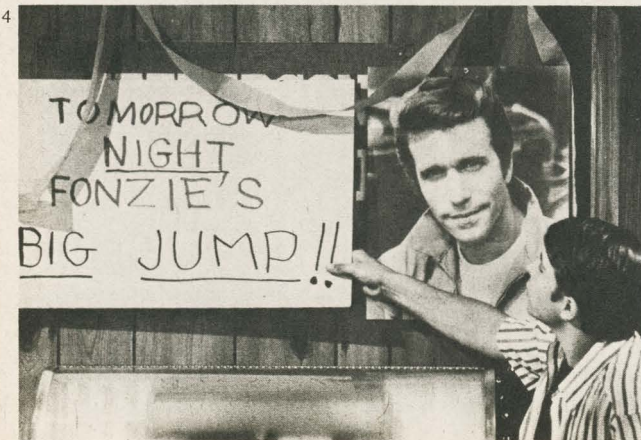 4
TOMORROW
NIGHT,
FONZIE'S
BIG JUMP!!